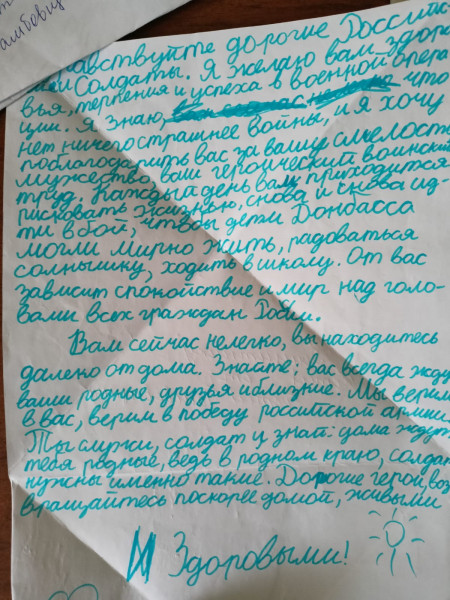 амбовц
Здравствуйте дорогие Российс-
кие Солдаты. Я желаю вам здоро-
вья, терпения и успеха в военной опера-
ции. Я знаю, что
нет ничего страшнее войны, и я хочу
поблагодарить вас за вашу смелость
мужество ваш героический воинский
труд. Каждый день вам приходится
рисковать жизнью, снова и снова ид-
ти в бой, чтобы дети Донбасса
могли мирно жить, радоваться
солнышку, ходить в школу. От вас
зависит спокойствие и мир над голо-
вами всех граждан
Вам сейчас нелегко, вы находитесь
далеко от дома. Знайте; вас всегда ждут
ваши родные, друзья и близкие. Мы верим
в вас, верим в победу российской армии.
Ты служи, солдат и знай: дома ждут
тебя родные, ведь в родном краю, солдат
нужны именно такие. Дорогие герои, воз
вращайтесь поскорее домой, живыми
И Здоровыми!